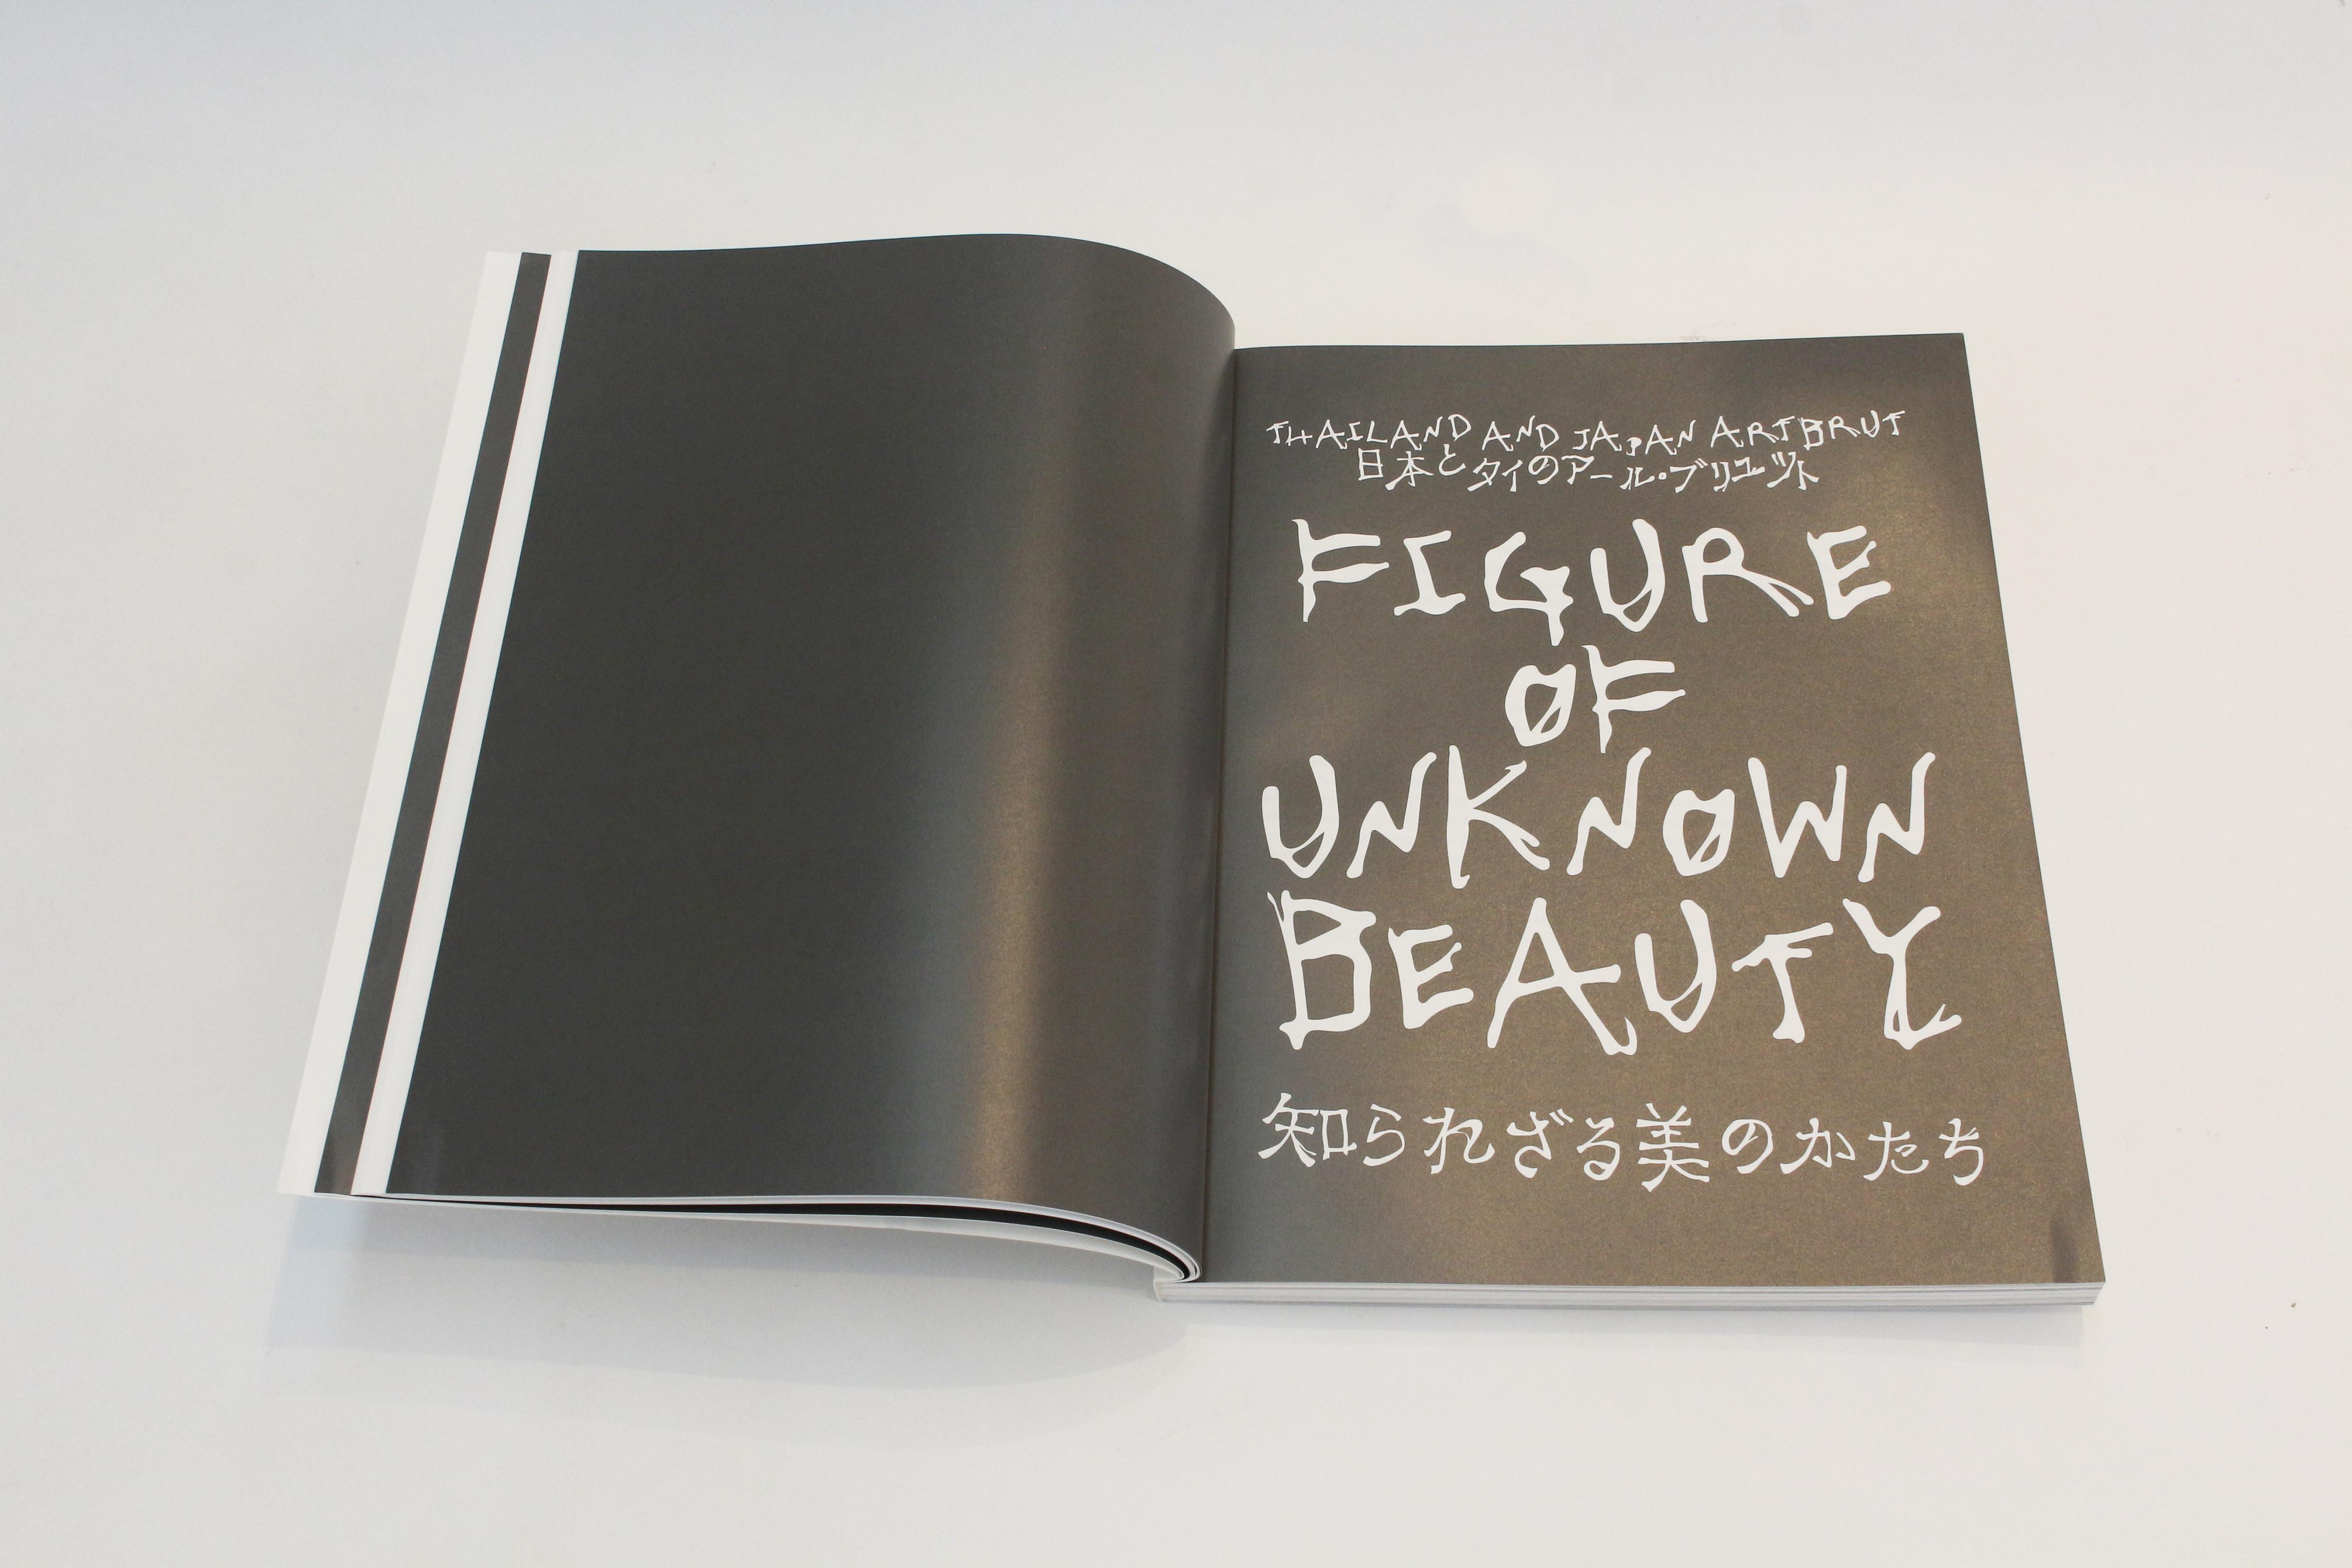 THAILAND AND JAPAN ART BRUT
日本とタイのアール・ブリュット
FIGURE
OF
UNKNOWN
BEAUTY
知られざる美のかたち